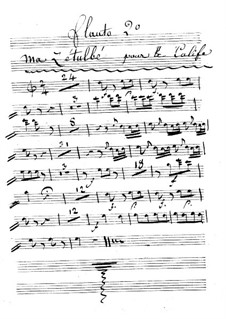 Flauto 2º
Ma Zétulbé pour le Calife
24
3
8
21
3 19
12
12
21